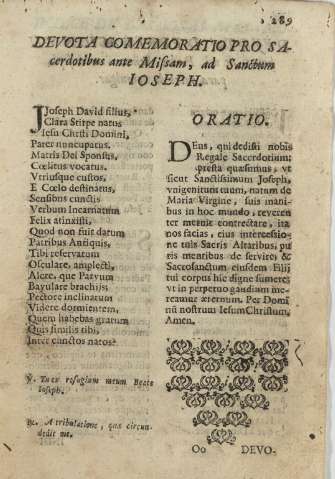 289
DEVOTA COMEMORATIO PRO SA-
cerdotibus ante Missam, ad Sanctum
IOSEPH.
Joseph David filius,
Clara Stirpe natus
Iesu Christi Domini,
Pater nuncupatus.
Matris Dei Sponsus,
Cœlitus vocatus.
Vtriusque custos,
E Cœlo destinatus,
Sensibus cunctis
Verbum Incarnatum
Felix atinxisti,
Quod non fuit datum
Patribus Antiquis,
Tibi reservatum
Osculare, amplecti,
Alere, que Parvum
Bayulare brachijs
Pectore inclinatum
Videre dormientem,
Quem habebas gratum
Quis similis tibi,
Inter cunctos natos?
℣. Tu es refugium meum Beate
Ioseph.
℟. A tribulatione, quæ circun-
dedit me.
ORATIO.
Deus, qui dedisti nobis
Regale Sacerdotium:
præsta quæsumus, vt
sicut Sanctissimum Joseph,
vnigenitum tuum, natum de
Maria Virgine, suis mani-
bus in hoc mundo, reveren
ter meruit contrectare, ita
nos facias, eius intercessio-
ne tuis Sacris Altaribus, pu
ris mentibus deservire; &
Sacrosanctum eiusdem Filij
tui corpus hic digne sumere,
vt in perpetuo gaudium me-
reamur æternum. Per Domi
nũ nostrum Iesum Christum,
Amen.
Oo DEVO-